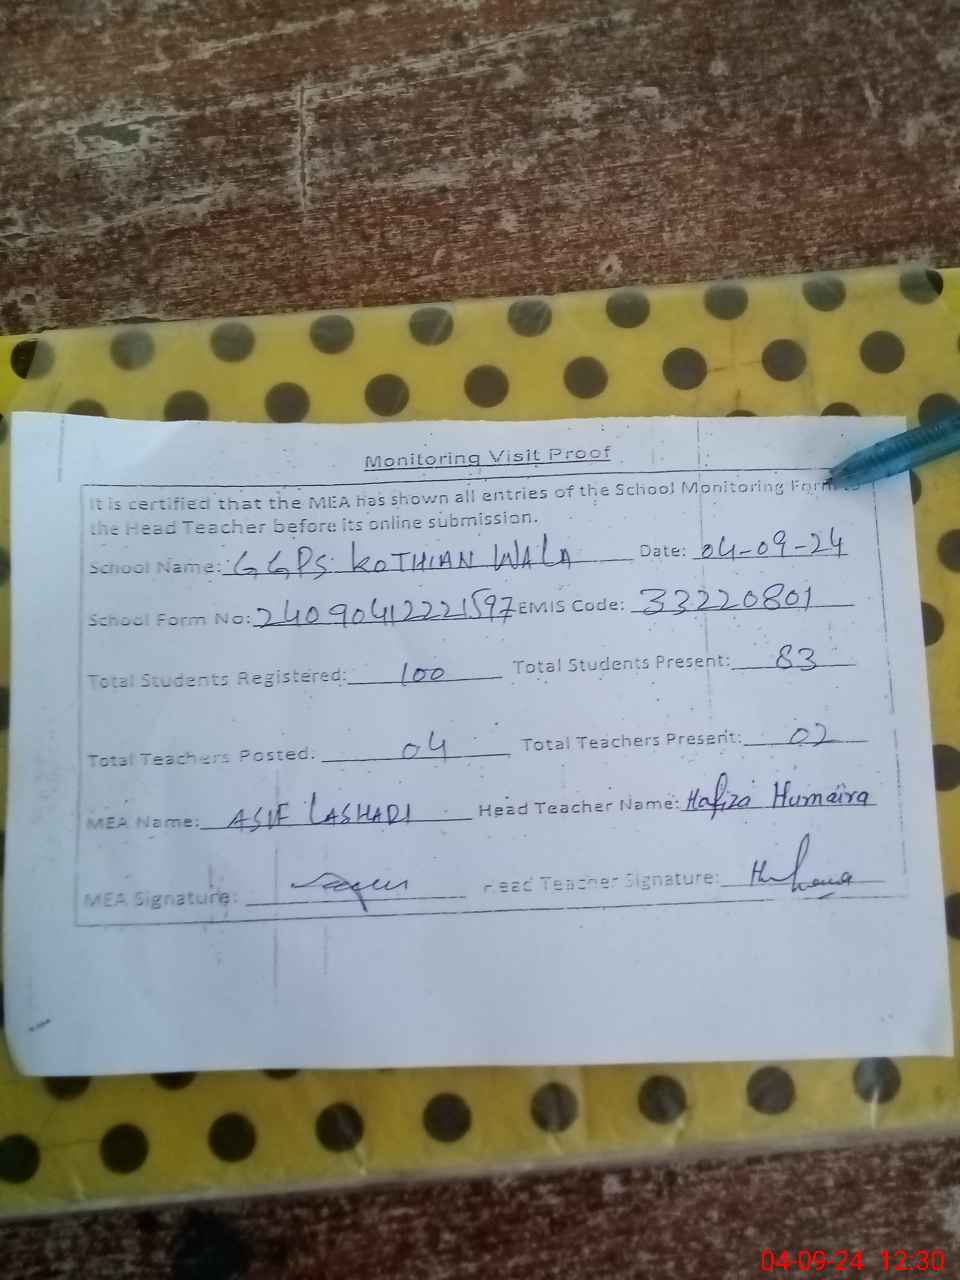 Monitoring Visit Proof
It is certified that the MEA has shown all entries of the School Monitoring Form to
the Head Teacher before its online submission.
School Name: GGPS. KOTHIAN WALA Date: 04-09-24
School Form No: 24090412221597 EMIS Code: 33220801
Total Students Registered: 100 Total Students Present: 83
Total Teachers Posted: 04 Total Teachers Present: 02
MEA Name: ASIF LASHARI Head Teacher Name: Hafiza Humaira
MEA Signature: Head Teacher Signature:
04-09-24 12:30